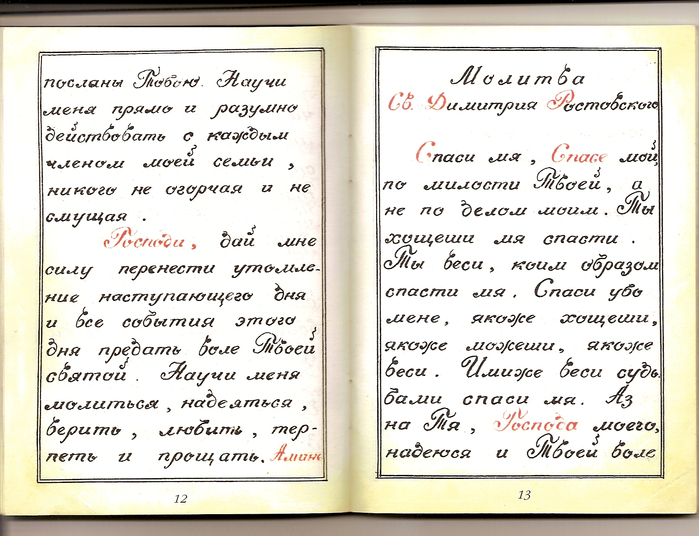 посланы Тобою. Научи
меня прямо и разумно
действовать с каждым
членом моей семьи,
никого не огорчая и не
смущая.
Господи, дай мне
силу перенести утомле-
ние наступающего дня
и все события этого
дня предать воле Твоей
святой. Научи меня
молиться, надеяться,
верить, любить, тер-
петь и прощать. Аминь
12
Молитва
Св. Димитрия Ростовского
Спаси мя, Спасе мой,
по милости Твоей, а
не по делом моим. Ты
хощеши мя спасти.
Ты веси, коим образом
спасти мя. Спаси убо
мене, якоже хощеши,
якоже можеши, якоже
веси. Имиже веси судь-
бами спаси мя. Аз
на Тя, Господа моего,
надеюся и Твоей воле
13